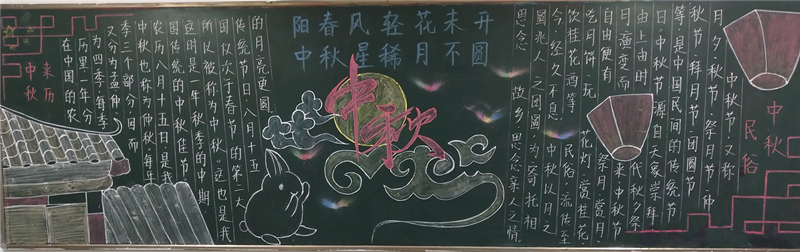 阳春风轻花未开
中秋星稀月不圆
中秋
中秋
来历
在中国的农
历里一年分
为四季,每季
又分为孟仲
季三个部分,因而
中秋也称为仲秋。每年
农历八月十五日,是我
国传统的中秋佳节,
这时是一年秋季的中期,
所以被称为中秋。这也是我
国仅次于春节的第二大
传统节日。八月十五
的月亮更圆
中秋
民俗
中秋节又称
月夕、秋节、祭月节、仲
秋节、拜月节、团圆节
等,是中国民间的传统节
日。中秋节源自天象崇拜,
由上古时代秋夕祭
月演变而来。中秋节
自古便有祭月、赏月、
吃月饼、玩花灯、赏桂花、
饮桂花酒等民俗,流传至
今,经久不息。中秋以月之
圆兆人之团圆,为寄托
思念故乡,思念亲人之情。